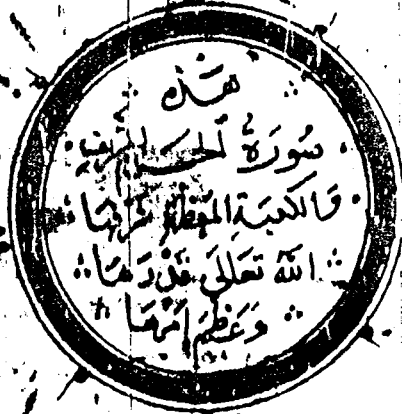 هَذِهِ
سُورَةُ الحَرَمِ الشَّرِيفِ
وَالكَعْبَةِ المُعَظَّمَةِ شَرَّفَهَا
اللّهُ تَعَالَى قَدْرَهَا
وَعَظَّمَ أَمْرَهَا